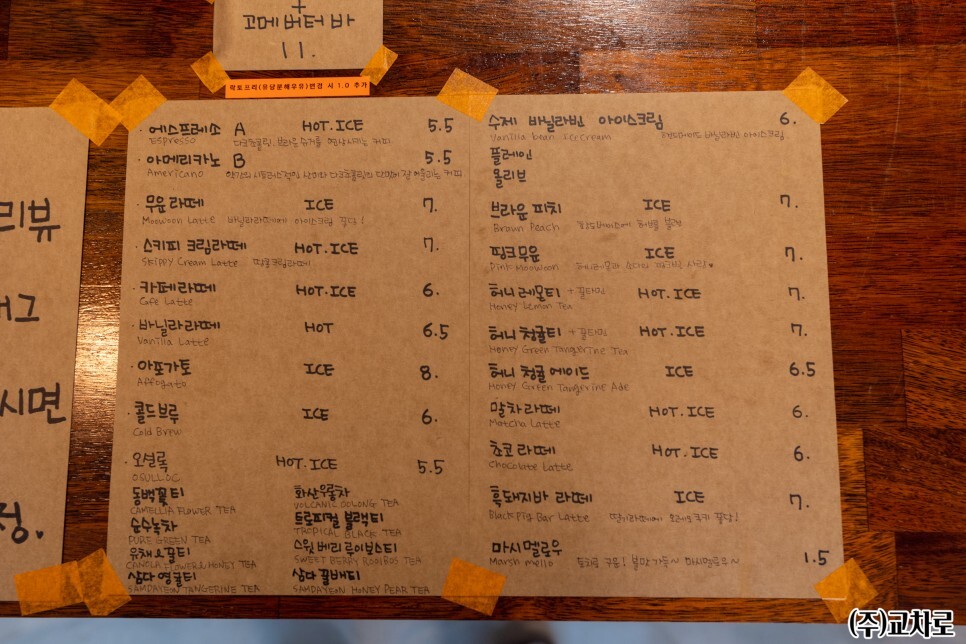 +
꼬메버터 바
11.
락토프리(유당분해우유)변경 시 1.0 추가
리뷰
시면
정.
· 에스프레소 A HOT.ICE 5.5
Espresso
· 아메리카노 B 5.5
Americano
· 무운 라떼 ICE 7.
Moowoon Latte 바닐라라떼에 아이스크림 퐁당!
· 스키피 크림라떼 HOT.ICE 7.
Skippy Cream Latte 땅콩크림라떼
· 카페라떼 HOT.ICE 6.
Cafe Latte
· 바닐라라떼 HOT 6.5
Vanilla Latte
· 아포가토 ICE 8.
Affogato
· 콜드브루 ICE 6.
Cold Brew
· 오설록 HOT.ICE 5.5
OSULLOC
동백꽃티 화산우롱차
CAMELLIA FLOWER TEA VOLCANIC OOLONG TEA
순수녹차 트로피컬 블랙티
PURE GREEN TEA TROPICAL BLACK TEA
유채&꿀티 스윗베리루이보스티
CANOLA FLOWER & HONEY TEA SWEET BERRY ROOIBOS TEA
삼다영귤티 삼다꿀배티
SAMDAYEON TANGERINE TEA SAMDAYEON HONEY PEAR TEA
수제 바닐라빈 아이스크림 6.
Vanilla bean Icecream
플레인
올리브
브라운 피치 ICE 7.
Braun Peach
핑크무운 ICE 7.
Pink Moowoon
허니레몬티 +꿀타임 HOT.ICE 7.
Honey Lemon Tea
허니 청귤티 +꿀타임 HOT.ICE 7.
Honey Green Tangerine Tea
허니 청귤 에이드 ICE 6.5
Honey Green Tangerine Ade
말차라떼 HOT.ICE 6.
Matcha Latte
초코라떼 HOT.ICE 6.
Chocolate Latte
흑돼지바 라떼 ICE 7.
Black Pig Bar Latte 딸기라떼에 오레오쿠키 퐁당!
마시멜로우 1.5
Marsh mello
(주)교차로